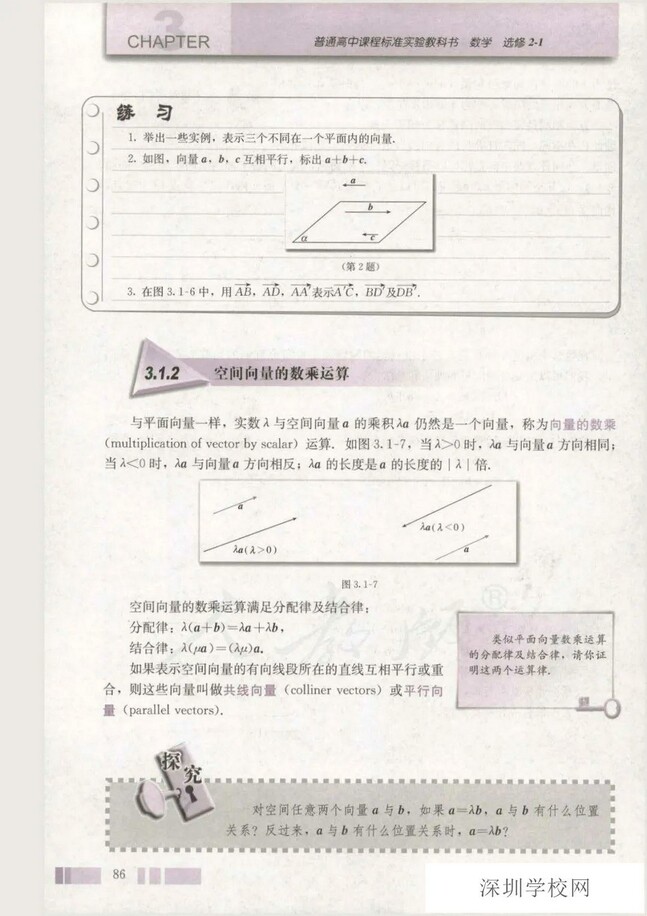 3
CHAPTER
普通高中课程标准实验教科书 数学 选修 2-1
练 习
1. 举出一些实例，表示三个不同在一个平面内的向量.
2. 如图，向量 a，b，c 互相平行，标出 a+b+c.
a
b
c
α
(第 2 题)
3. 在图 3.1-6 中，用 AB，AD，AA′表示A′C，BD′及DB′.
3.1.2 空间向量的数乘运算
与平面向量一样，实数 λ 与空间向量 a 的乘积 λa 仍然是一个向量，称为向量的数乘
(multiplication of vector by scalar) 运算. 如图 3.1-7，当 λ>0 时，λa 与向量 a 方向相同；
当 λ<0 时，λa 与向量 a 方向相反；λa 的长度是 a 的长度的 | λ | 倍.
a
λa(λ>0)
λa(λ<0)
a
图 3.1-7
空间向量的数乘运算满足分配律及结合律：
分配律：λ(a+b)=λa+λb，
结合律：λ(μa)=(λμ)a.
类似平面向量数乘运算
的分配律及结合律，请你证
明这两个运算律.
如果表示空间向量的有向线段所在的直线互相平行或重
合，则这些向量叫做共线向量 (colliner vectors) 或平行向
量 (parallel vectors).
探究
对空间任意两个向量 a 与 b，如果 a=λb，a 与 b 有什么位置
关系？反过来，a 与 b 有什么位置关系时，a=λb？
86
深圳学校网